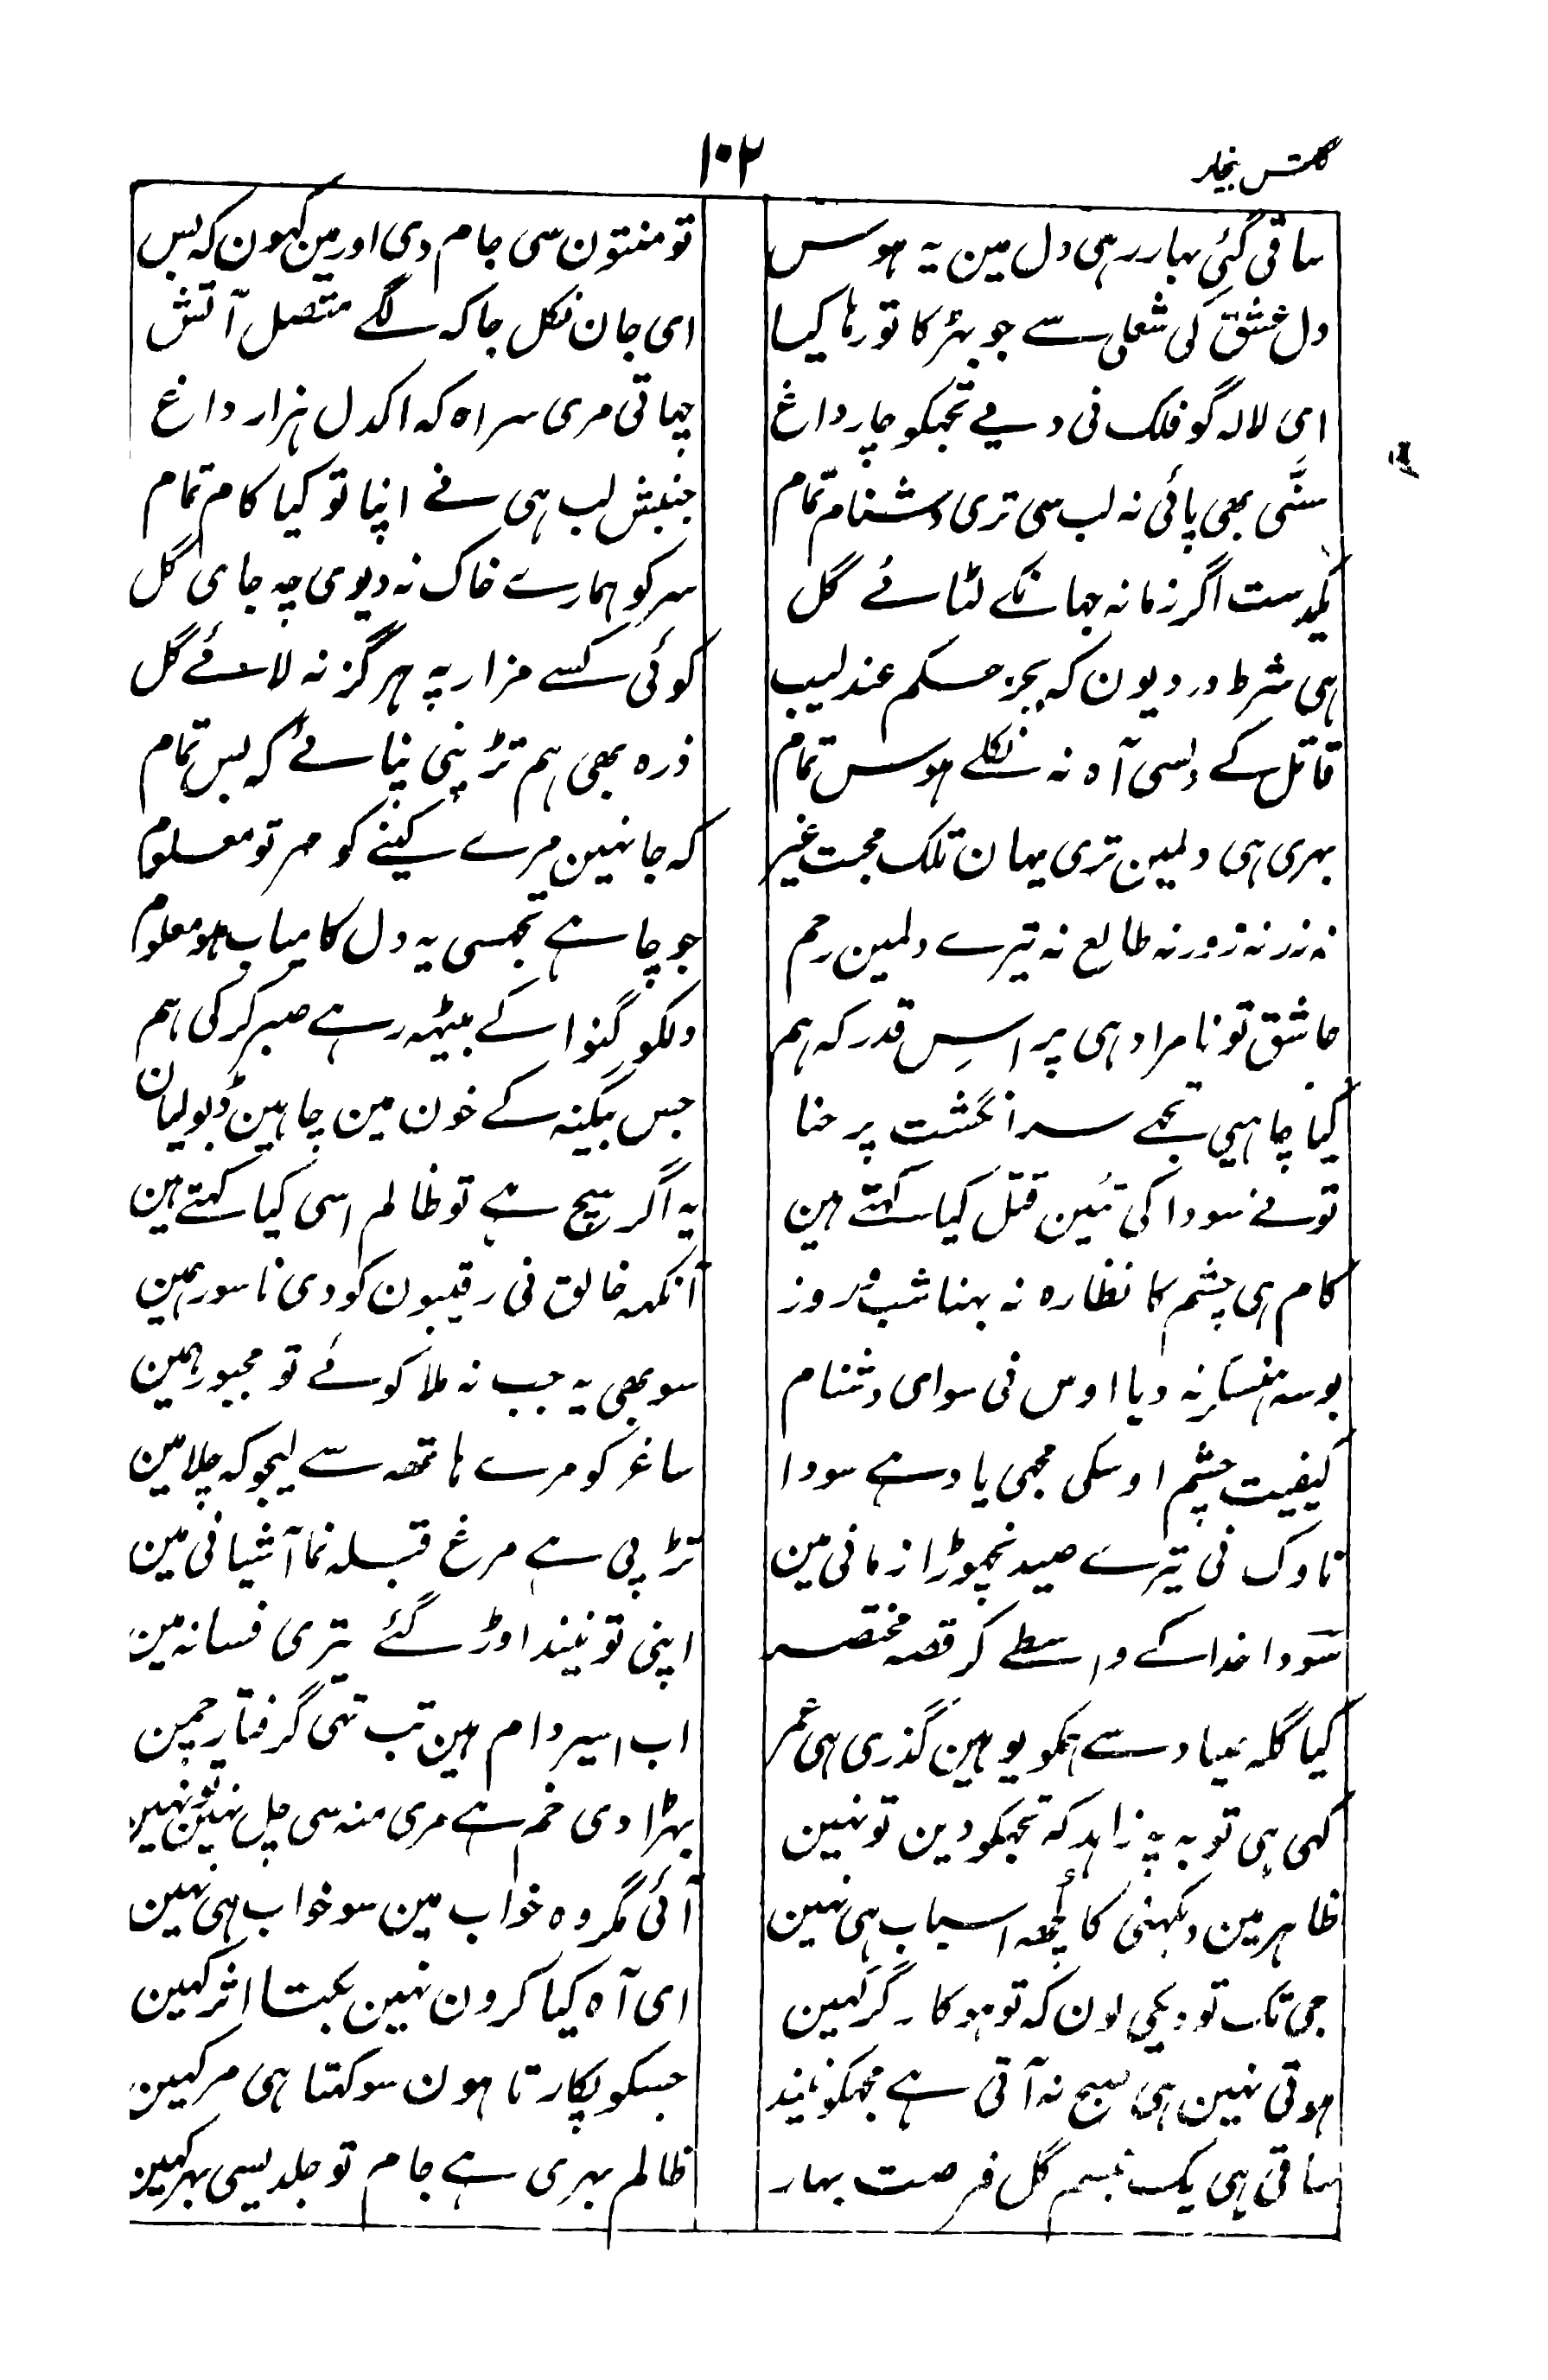 گلشن بیخار
١٠٢
ساقی گئی بہار رہی دل مین یہ ہوس
تو منتون سی جام دی اور مین کہون کہ بس
دل عشق کی شعلی سے جو بہڑکا تو رہا کیا
ای جان نکل جا کہ لگے متصل آتش
ای لالہ گو فلک نی دیے تجہکو چار داغ
چہاتی مری سراہ کہ اکدل ہزار داغ
سنَّی بھی پائی نہ لب سی تری دشنام تمام
جنبش لب ہی نے اپنا تو کیا کام تمام
یکدست اگر زمانہ جہانکے لٹائے گل
سر کو ہمارے خاک نہ دیوی چہ جای گل
ہی شرط درد یون کہ بجز حکم عندلیب
کوئی کسے مزار پہ ہرگز نہ لائے گل
قاتل کے دلسی آہ نہ نکلے ہوس تمام
ذرہ بھی ہم تڑپنی نپائے کہ بس تمام
بہری ہی دلمین تری یہان تلک محبت غیر
کہ جا نہین مرے کینے کو مہر تو معلوم
نہ زر نہ زور نہ طالع نہ تیرے دلمین رحم
جو چاہے تجہسی یہ دل کامیاب ہو معلوم
عاشق تو نامراد ہی پر اسِ قدر کہ ہم
دلکو گنوا کے بیٹہہ رہے صبر کر کی ہم
کیا چاہیی تجہے سر انگشت پر حنا
جس بیگنہ کے خون مین چاہین ڈبولیان
تونے سودا کی تئین قتل کیا کہتے ہین
یہ اگر سچ ہے تو ظالم اسی کیا کہتے ہین
کام ہی چشم کا نظارہ نہ بہنا شب و روز
آنکہہ خالق نی رقیبون کو دی ناسور ہمین
بوسہ ہنسکر نہ دیا اوس نی سوای دشنام
سو بھی یہ جب نہ ملا کوئے تو مجبور ہمین
کیفیت چشم اوسکی مجہی یاد ہے سودا
ساغر کو مرے ہاتھہ سے لیجو کہ چلا مین
ناوک نی تیرے صید نچہوڑا زمانی مین
تڑپی ہے مرغ قبلہ نما آشیانی مین
سودا خدا کے واسطے کر قصہ مختصر
اپنی تو نیند اوڑ گئے تیری فسانہ مین
کیا گلہ صیاد سے ہمکو یوہین گذری ہی عمر
اب اسیر دام ہین تب تہی گرفتار چمن
کہی ہی توبہ پہ زاہد کہ تجہکو دین تو نہین
بہڑا دی خم ہے مری منہ سی چل نہین تو نہین
ظاہر مین دیکہنی کا کچھہ اسباب ہی نہین
آئی مگر وہ خواب مین سو خواب ہی نہین
جی تک تو دیکی لون کہ تو ہو کارگر کہین
ای آہ کیا کرون نہین بکتا اثر کہین
ہوتی نہین ہی صبح نہ آتی ہے مجہکو نیند
جسکو پکارتا ہون سو کہتا ہی مر کہین
ساقی ہی یک تبسم گل فرصت بہار
ظالم بہری ہے جام تو جلدیسی بہر کہین